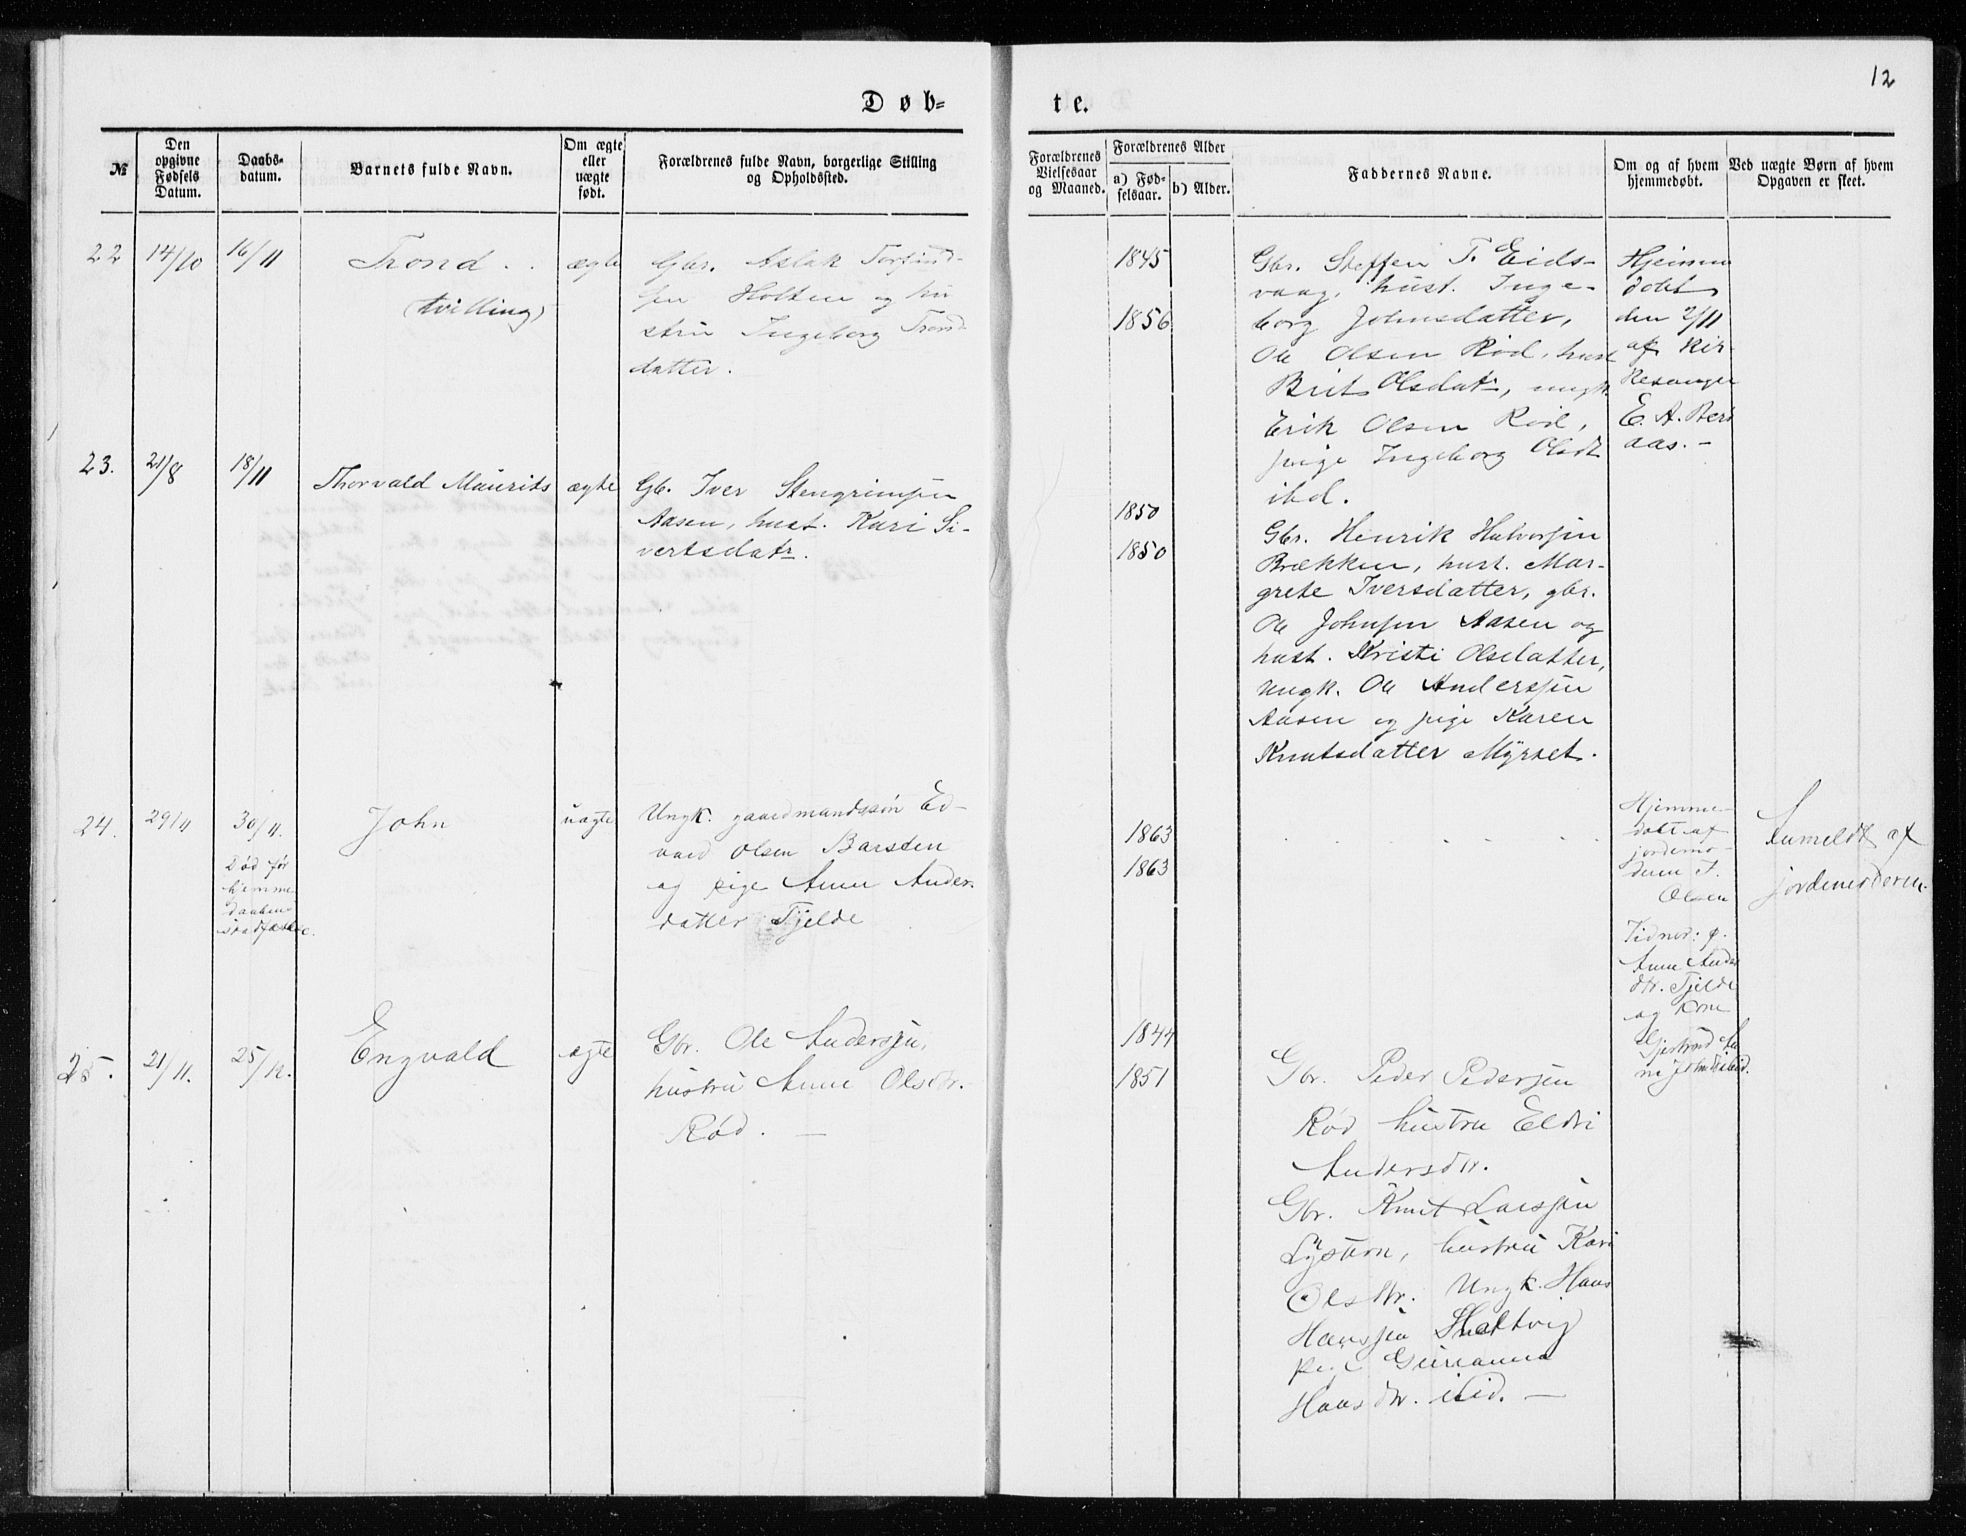 12
Døb-
te.
№
Den opgivne Fødsels Datum.
Daabs-datum.
Barnets fulde Navn.
Om ægte eller uægte født.
Forældrenes fulde Navn, borgerlige Stilling og Opholdssted.
Forældrenes Vielsesaar og Maaned.
Forældrenes Alder
a) Fød-selsaar.
b) Alder.
Faddernes Navne.
Om og af hvem hjemmedøbt.
Ved uægte Børn af hvem Opgaven er skeet.
22
14/10
16/11
Trond
(tvilling)
ægte
Gbr. Aslak Torfind-
sen Holten og hu
stru Ingeborg Trond
datter.
1845
1856
Gbr. Steffen T. Eids-
vaag, hust. Inge-
borg Johnsdatter,
Ole Olsen Rød, hust
Brit Olsdatr, ungk.
Erik Olsen Rød,
pige Ingeborg Olsdt
ibd.
Hjemme
døbt
den 2/11
af Kir-
kesanger
E. A. Berd
aas. -
23.
21/8
18/11
Thorvald Maurits
ægte
Gb. Iver Stengrimsen
Aasen, hust. Kari Si-
vertsdatr.
1850
1850
Gbr. Henrik Halvorsen
Brækken, hust. Mar-
grete Iversdatter, gbr.
Ole Johnsen Aasen og
hust. Kristi Olsdatter,
ungk. Ole Anderssen
Aasen og pige Karen
Knutsdatter Myrset.
24.
29/11
30/11.
Død før
hjemme
daabens
stadfæstelse.
John
uægte
Ungk. gaardmandssøn Ed-
vard Olsen Barsten
og pige Anne Anders
datter Fjelde
1863
1863
Hjemme-
døbt af
jordemo-
deren
Olsen
Vidner: p.
Anne Anders
dtr. Fjelde
og kone
Gjertrud
ibid.
Anmeldt af
jordemoderen.
25.
21/11.
25/12.
Engvald
ægte
Gbr. Ole Anderssen,
hustru Anne Olsdtr.
Rød. —
1844
1851
Gbr. Peder Pedersen
Rød hustru Eldri
Andersdtr.
Gbr. Knut Larssen
hustru Kari
Olsdtr. Ungk. Hans
Hanssen
pige Gurianna
Hansdtr. ibid. —